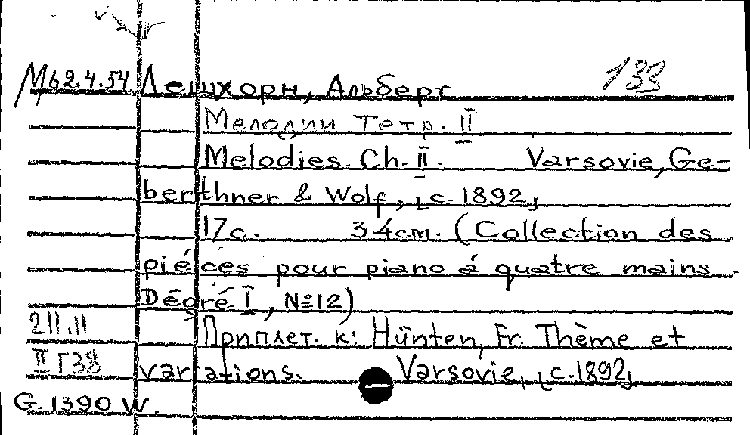 133
М62.4.54 Лешхорн, Альберт
Мелодии Тетр. II
Melodies. Ch. II. Varsovie, Ge-
berthner & Wolf, [c. 1892]
17c. 34cm. (Collection des
piéces pour piano á quatre mains.
Dégré I, №12)
211.11 Приплет. к: Hünten, Fr. Thème et
II Г38 variations. Varsovie, [c. 1892]
G. 1390 W.